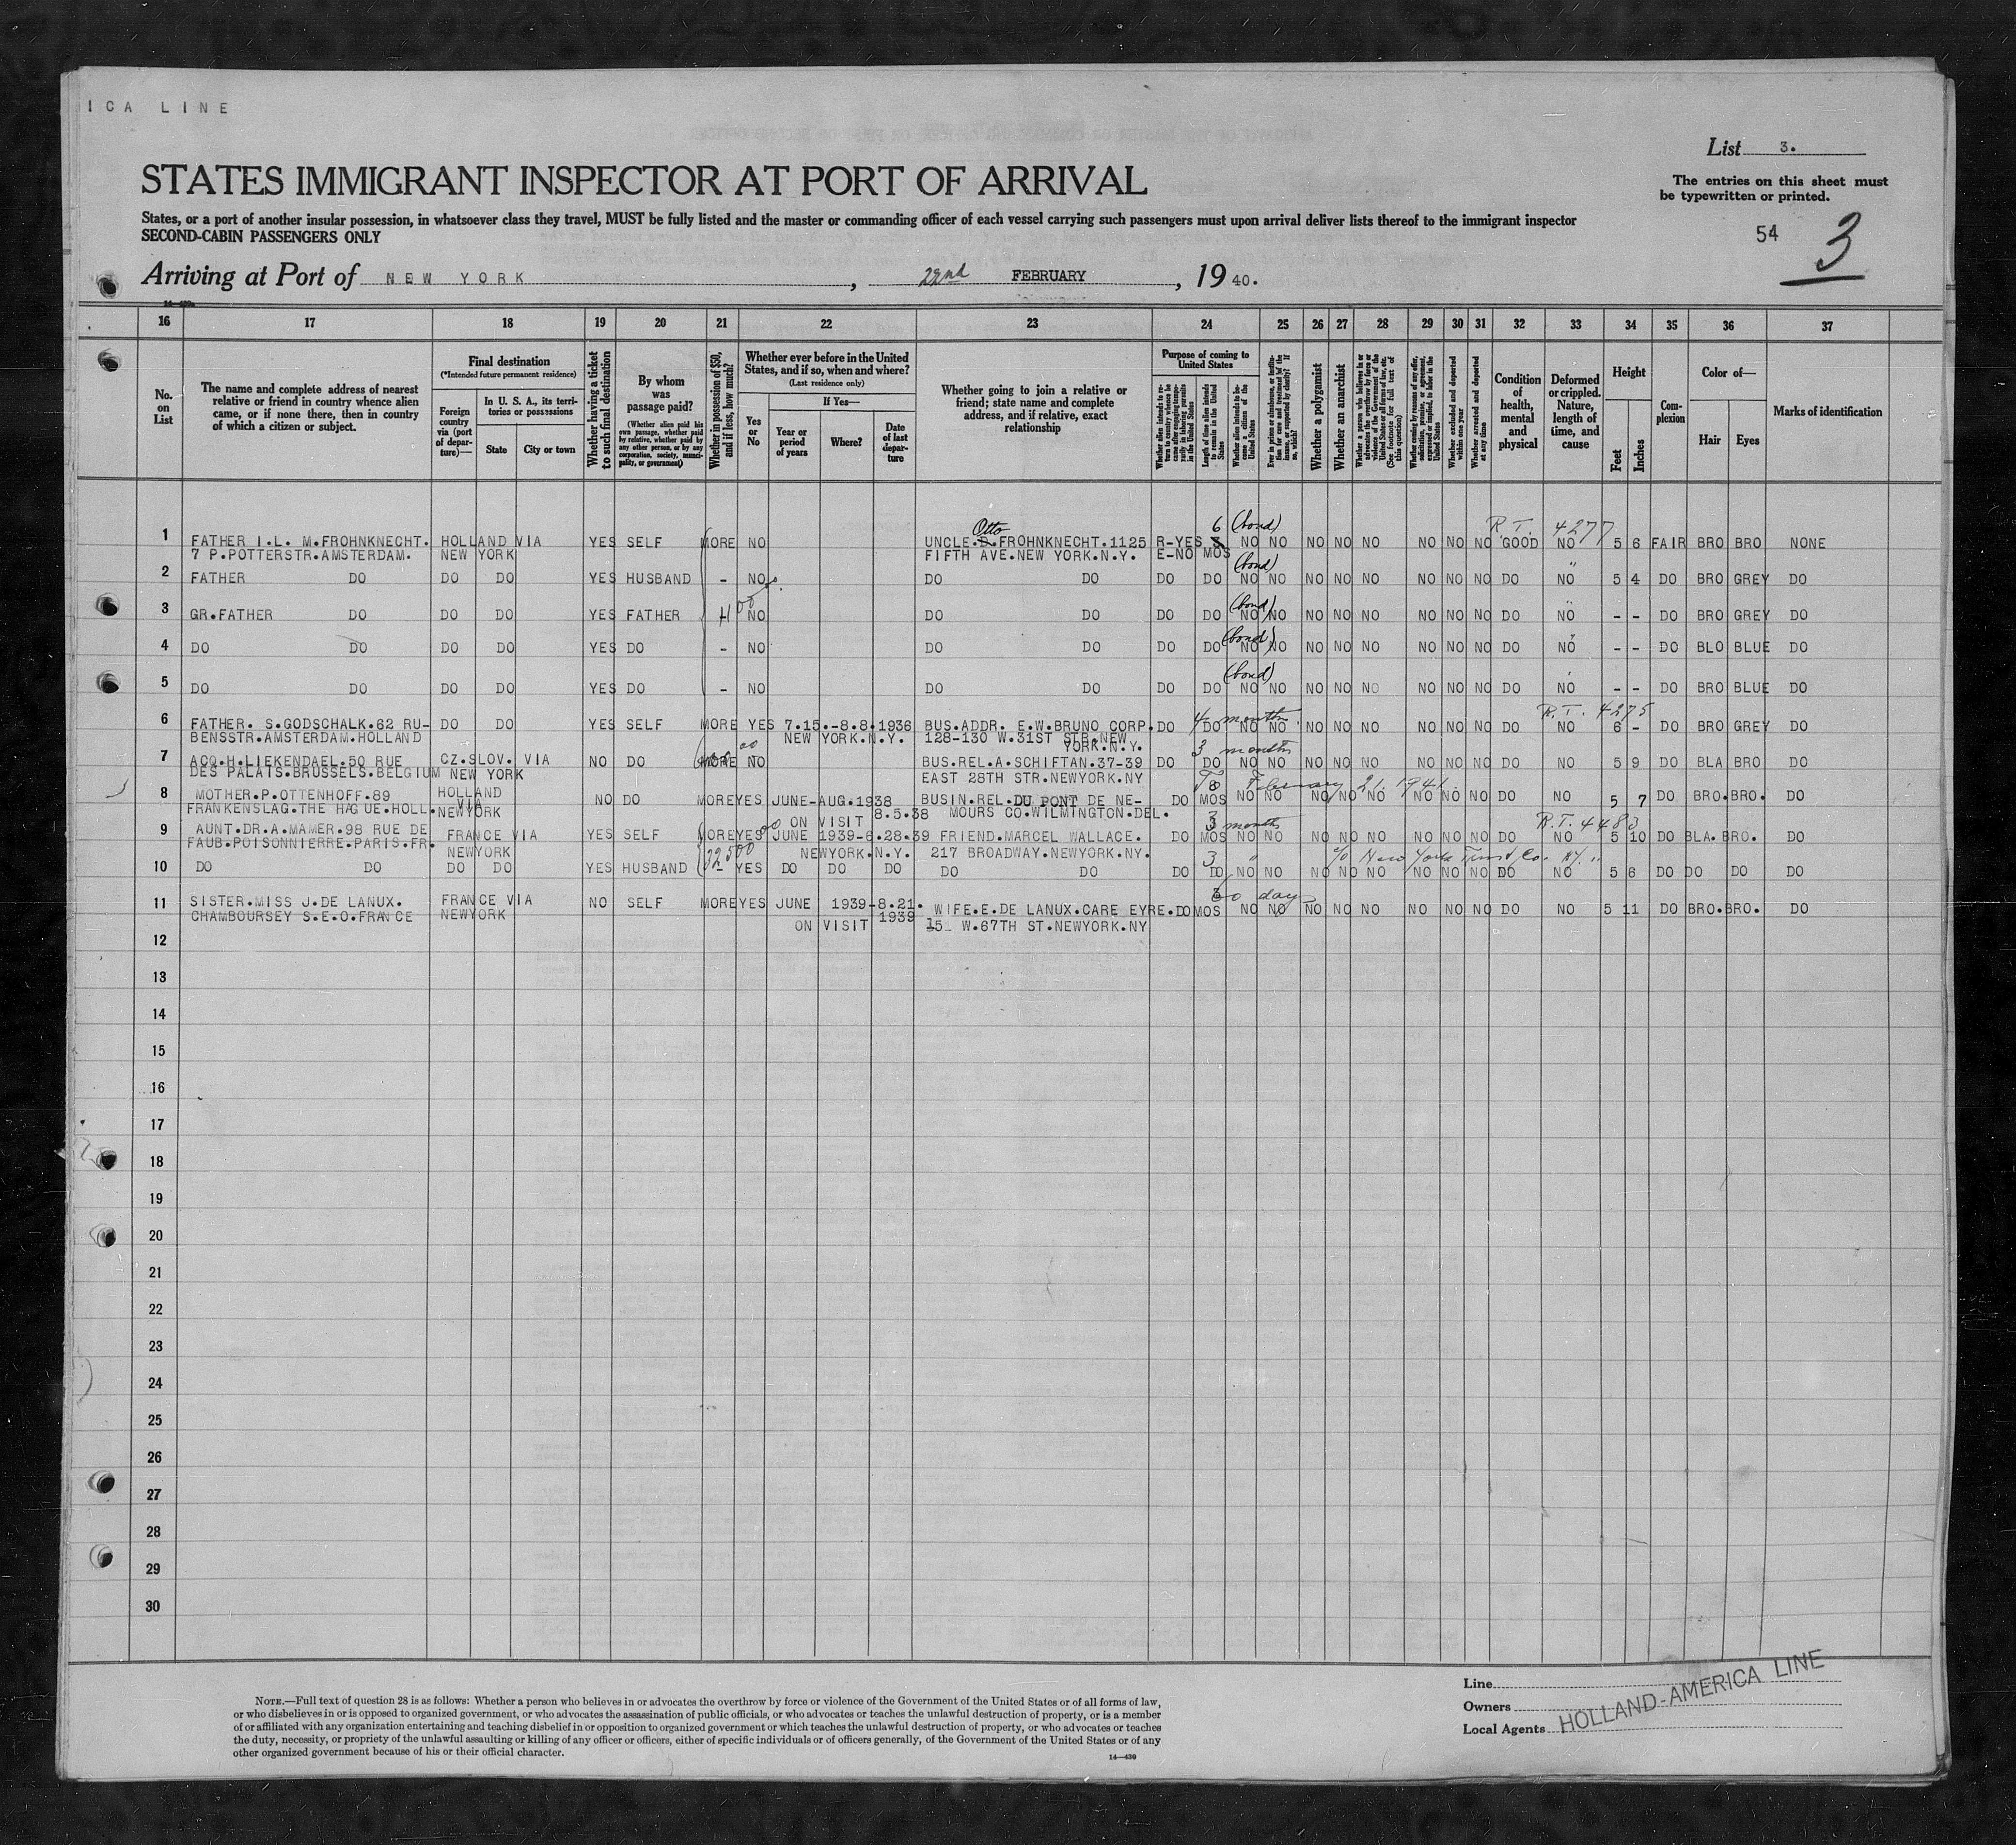 ICA LINE
List 3.
STATES IMMIGRANT INSPECTOR AT PORT OF ARRIVAL
The entries on this sheet must
be typewritten or printed.
States, or a port of another insular possession, in whatsoever class they travel, MUST be fully listed and the master or commanding officer of each vessel carrying such passengers must upon arrival deliver lists thereof to the immigrant inspector
SECOND-CABIN PASSENGERS ONLY
54 3
Arriving at Port of NEW YORK, 22nd FEBRUARY, 1940.
16 17 18 19 20 21 22 23 24 25 26 27 28 29 30 31 32 33 34 35 36 37
No. on List
The name and complete address of nearest relative or friend in country whence alien came, or if none there, then in country of which a citizen or subject.
Final destination
(*Intended future permanent residence)
Foreign country via (port of departure)—
In U. S. A., its territories or possessions
State
City or town
Whether having a ticket to such final destination
By whom was passage paid?
(Whether alien paid his own passage, whether paid by relative, whether paid by any other person, or by any corporation, society, municipality, or government)
Whether in possession of $50, and if less, how much?
Whether ever before in the United States, and if so, when and where?
(Last residence only)
Yes or No
If Yes—
Year or period of years
Where?
Date of last departure
Whether going to join a relative or friend; state name and complete address, and if relative, exact relationship
Purpose of coming to United States
Length of time alien intends to remain in the United States
Whether alien intends to become a citizen of the United States
Whether a polygamist
Whether an anarchist
(See footnote for full text of this question)
Whether excluded and deported within one year
Whether arrested and deported at any time
Condition of health, mental and physical
Deformed or crippled. Nature, length of time, and cause
Height
Feet
Inches
Complexion
Color of—
Hair
Eyes
Marks of identification
Otto 6 (bond) R.T. 4277
1 FATHER I.L. M.FROHNKNECHT. HOLLAND VIA YES SELF MORE NO UNCLE.FROHNKNECHT.1125 R-YES NO NO NO NO NO NO NO NO GOOD NO 5 6 FAIR BRO BRO NONE
7 P.POTTERSTR.AMSTERDAM. NEW YORK FIFTH AVE.NEW YORK.N.Y. E-NO MOS
(bond)
2 FATHER DO DO DO YES HUSBAND - NO DO DO DO DO NO NO NO NO NO NO NO NO DO NO 5 4 DO BRO GREY DO
(bond)
3 GR.FATHER DO DO DO YES FATHER NO DO DO DO DO NO NO NO NO NO NO NO NO DO NO - - DO BRO GREY DO
(bond)
4 DO DO DO DO YES DO - NO DO DO DO DO NO NO NO NO NO NO NO NO DO NO - - DO BLO BLUE DO
(bond)
5 DO DO DO DO YES DO - NO DO DO DO DO NO NO NO NO NO NO NO NO DO NO - - DO BRO BLUE DO
4 months R.T. 4275
6 FATHER. S.GODSCHALK.62 RU- DO DO YES SELF MORE YES 7.15.-8.8.1936 BUS.ADDR. E.W.BRUNO CORP. DO DO NO NO NO NO NO NO NO NO DO NO 6 - DO BRO GREY DO
BENSSTR.AMSTERDAM.HOLLAND NEW YORK.N.Y. 128-130 W.31ST STR.NEW
YORK.N.Y.
3 months
7 ACQ.H.LIEKENDAEL.50 RUE CZ.SLOV. VIA NO DO MORE NO BUS.REL.A.SCHIFTAN.37-39 DO DO NO NO NO NO NO NO NO NO DO NO 5 9 DO BLA BRO DO
DES PALAIS.BRUSSELS.BELGIUM NEW YORK EAST 28TH STR.NEWYORK.NY
To February 21. 1941.
8 MOTHER.P.OTTENHOFF.89 HOLLAND VIA NO DO MORE YES JUNE-AUG.1938 BUSIN.REL.DU PONT DE NE- DO MOS NO NO NO NO NO NO NO NO DO NO 5 7 DO BRO. BRO. DO
FRANKENSLAG.THE HAGUE.HOLL. NEWYORK ON VISIT 8.5.38 MOURS CO.WILMINGTON.DEL.
3 months R.T. 4483
9 AUNT.DR.A.MAMER.98 RUE DE FRANCE VIA YES SELF MORE YES JUNE 1939-6.28.39 FRIEND.MARCEL WALLACE. DO MOS NO NO NO NO NO NO NO NO DO NO 5 10 DO BLA. BRO. DO
FAUB.POISONNIERRE.PARIS.FR. NEWYORK NEWYORK.N.Y. 217 BROADWAY.NEWYORK.NY.
3 " c/o New York Trust Co. NY. "
10 DO DO DO DO YES HUSBAND YES DO DO DO DO DO DO DO NO NO NO NO NO NO NO NO DO NO 5 6 DO DO DO DO
60 days
11 SISTER.MISS J.DE LANUX. FRANCE VIA NO SELF MORE YES JUNE 1939-8.21. WIFE.E.DE LANUX.CARE EYRE. DO MOS NO NO NO NO NO NO NO NO DO NO 5 11 DO BRO. BRO. DO
CHAMBOURSEY S.E.O.FRANCE NEWYORK ON VISIT 1939 W.67TH ST.NEWYORK.NY
12
13
14
15
16
17
18
19
20
21
22
23
24
25
26
27
28
29
30
NOTE.—Full text of question 28 is as follows: Whether a person who believes in or advocates the overthrow by force or violence of the Government of the United States or of all forms of law,
or who disbelieves in or is opposed to organized government, or who advocates the assassination of public officials, or who advocates or teaches the unlawful destruction of property, or is a member
of or affiliated with any organization entertaining and teaching disbelief in or opposition to organized government or which teaches the unlawful destruction of property, or who advocates or teaches
the duty, necessity, or propriety of the unlawful assaulting or killing of any officer or officers, either of specific individuals or of officers generally, of the Government of the United States or of any
other organized government because of his or their official character.
14—430
Line
Owners
Local Agents
HOLLAND-AMERICA LINE